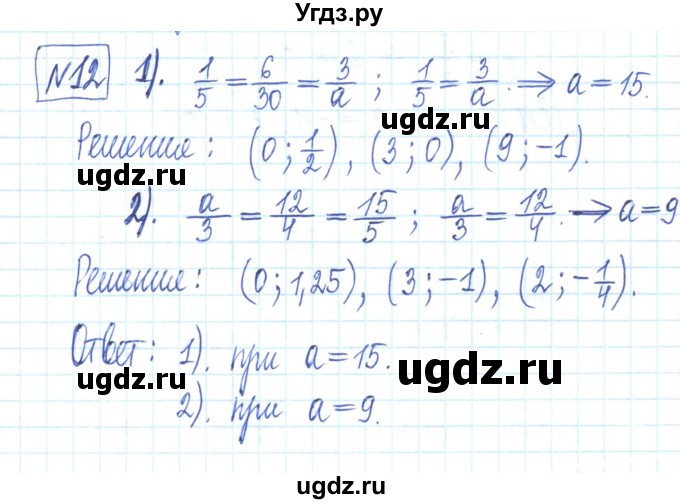 Угдз.ру
№12 1). 1/5 = 6/30 = 3/a ; 1/5 = 3/a. ⇒ a = 15.
Решения : (0 ; 1/2), (3 ; 0), (9 ; -1).
ugdz.ru ugdz.ru
2). a/3 = 12/4 = 15/5 ; a/3 = 12/4. ⇒ a = 9
Решения : (0 ; 1,25), (3 ; -1), (2 ; -1/4).
ugdz.ru ugdz.ru
Ответ : 1). при a = 15.
ugdz.ru ugdz.ru
2). при a = 9.
ugdz.ru